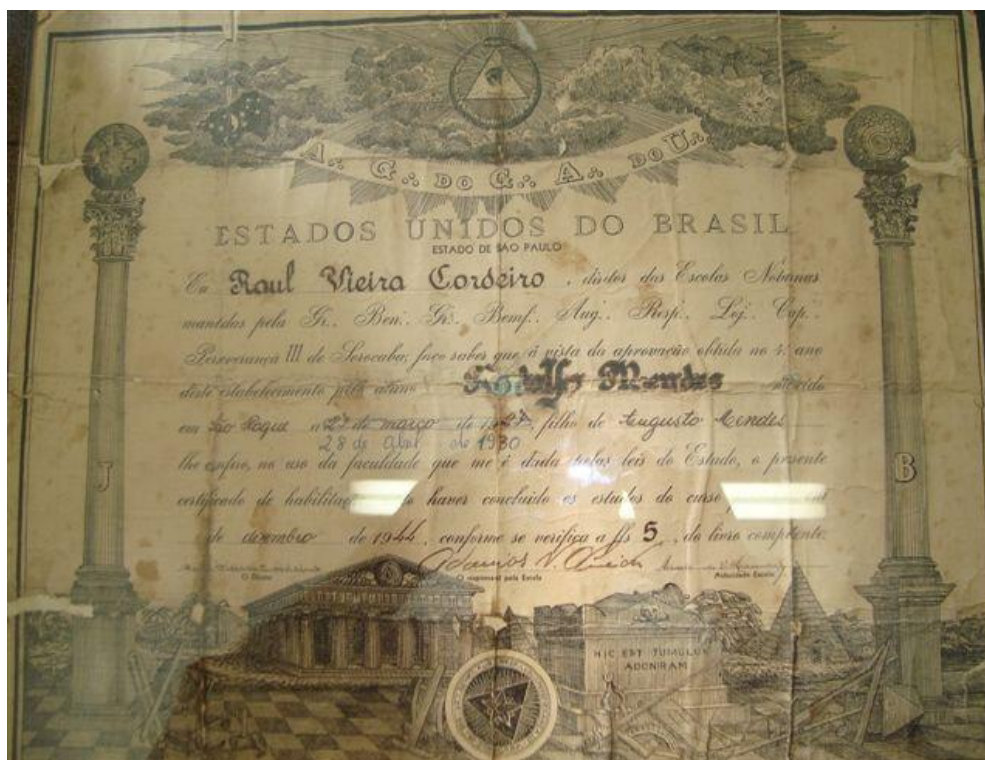 A∴ G∴ DO G∴ A∴ DO U∴
ESTADOS UNIDOS DO BRASIL
ESTADO DE SÃO PAULO
Eu Raul Vieira Cordeiro, diretor das Escolas Noturnas
mantidas pela Gr∴ Ben∴ Gr∴ Bemf∴ Aug∴ Resp∴ Loj∴ Cap∴
Perseverança III de Sorocaba: faço saber que á vista da aprovação obtida no 4. ano
deste estabelecimento pelo aluno Rodolfo Mendes nascido
em São Roque a 27 de março de filho de Augusto Mendes
28 de Abril de 1930
lhe confiro, no uso da faculdade que me é dada pelas leis do Estado, o presente
certificado de haver concluido os estudos do curso
de dezembro de 1944, conforme se verifica a fls 5, do livro competente.
O responsavel pela Escola
Autoridade Escolar
J
B
HIC EST TUMULUS
ADONIRAM